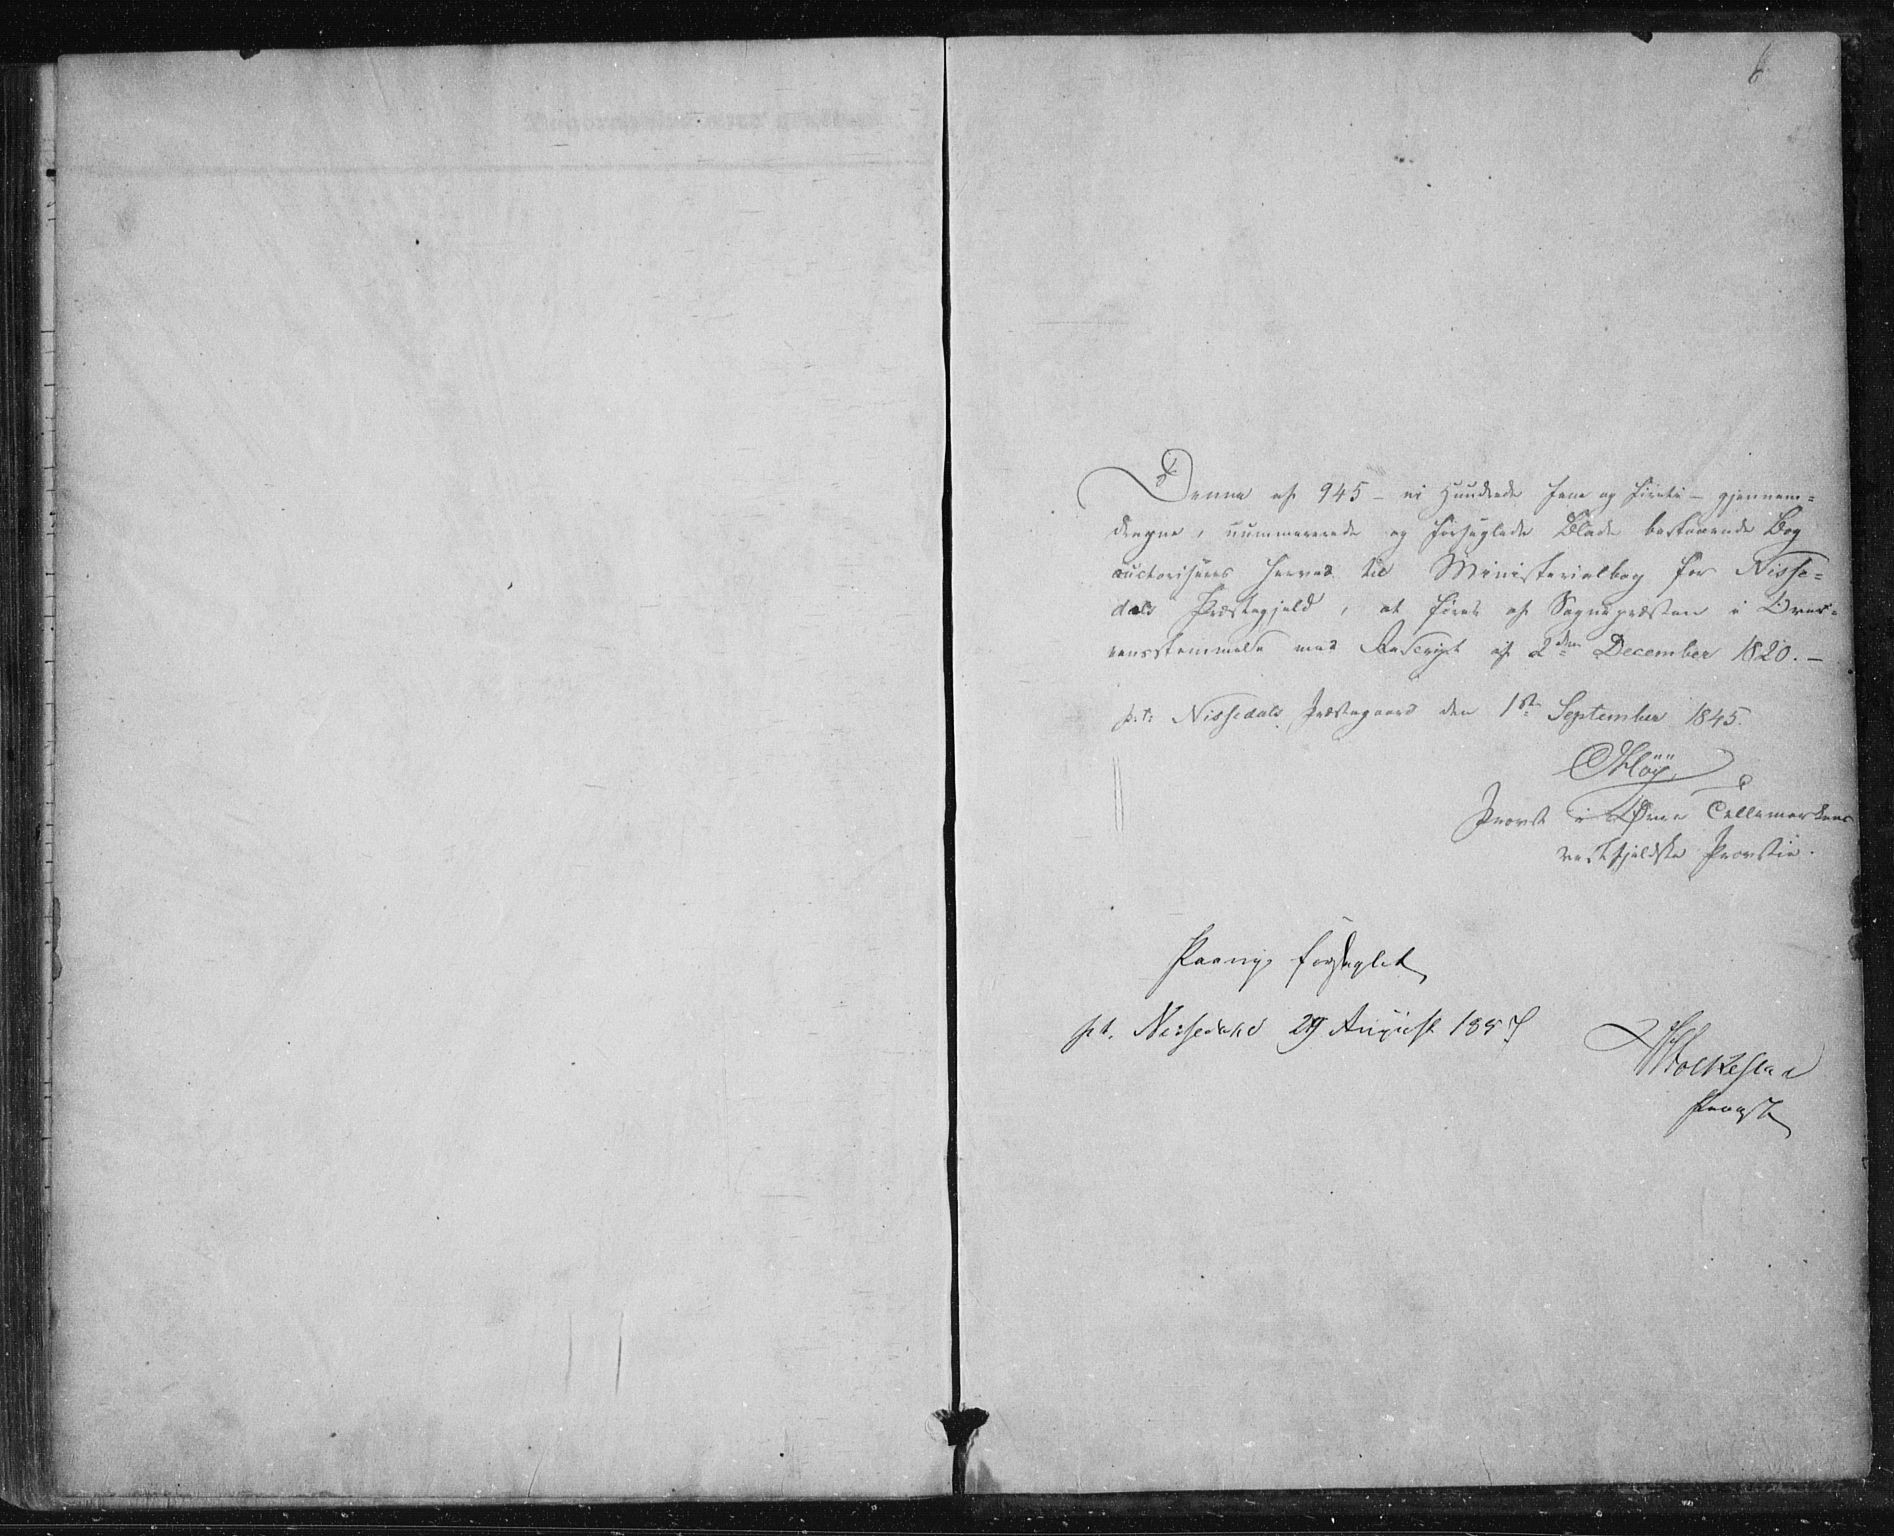 Denne af 945 – ni Hundrede fem og fireti – gjennem=
dragne, nummererede og forseglede Blade bestaaende Bog
auctoriseres herved til Ministerialbog for Nisse=
dals Præstegjeld, at føres af Sognepræsten i Over=
eensstemmelse med Rescript af 2den December 1820. –
p. t. Nissedals Præstegaard den 1ste September 1845.
Høÿ
Provst i Øvre Tellemarkens
vestfjeldske Provstie.
Paany forseglet
pt. Nissedal 29 August 1857
Provst